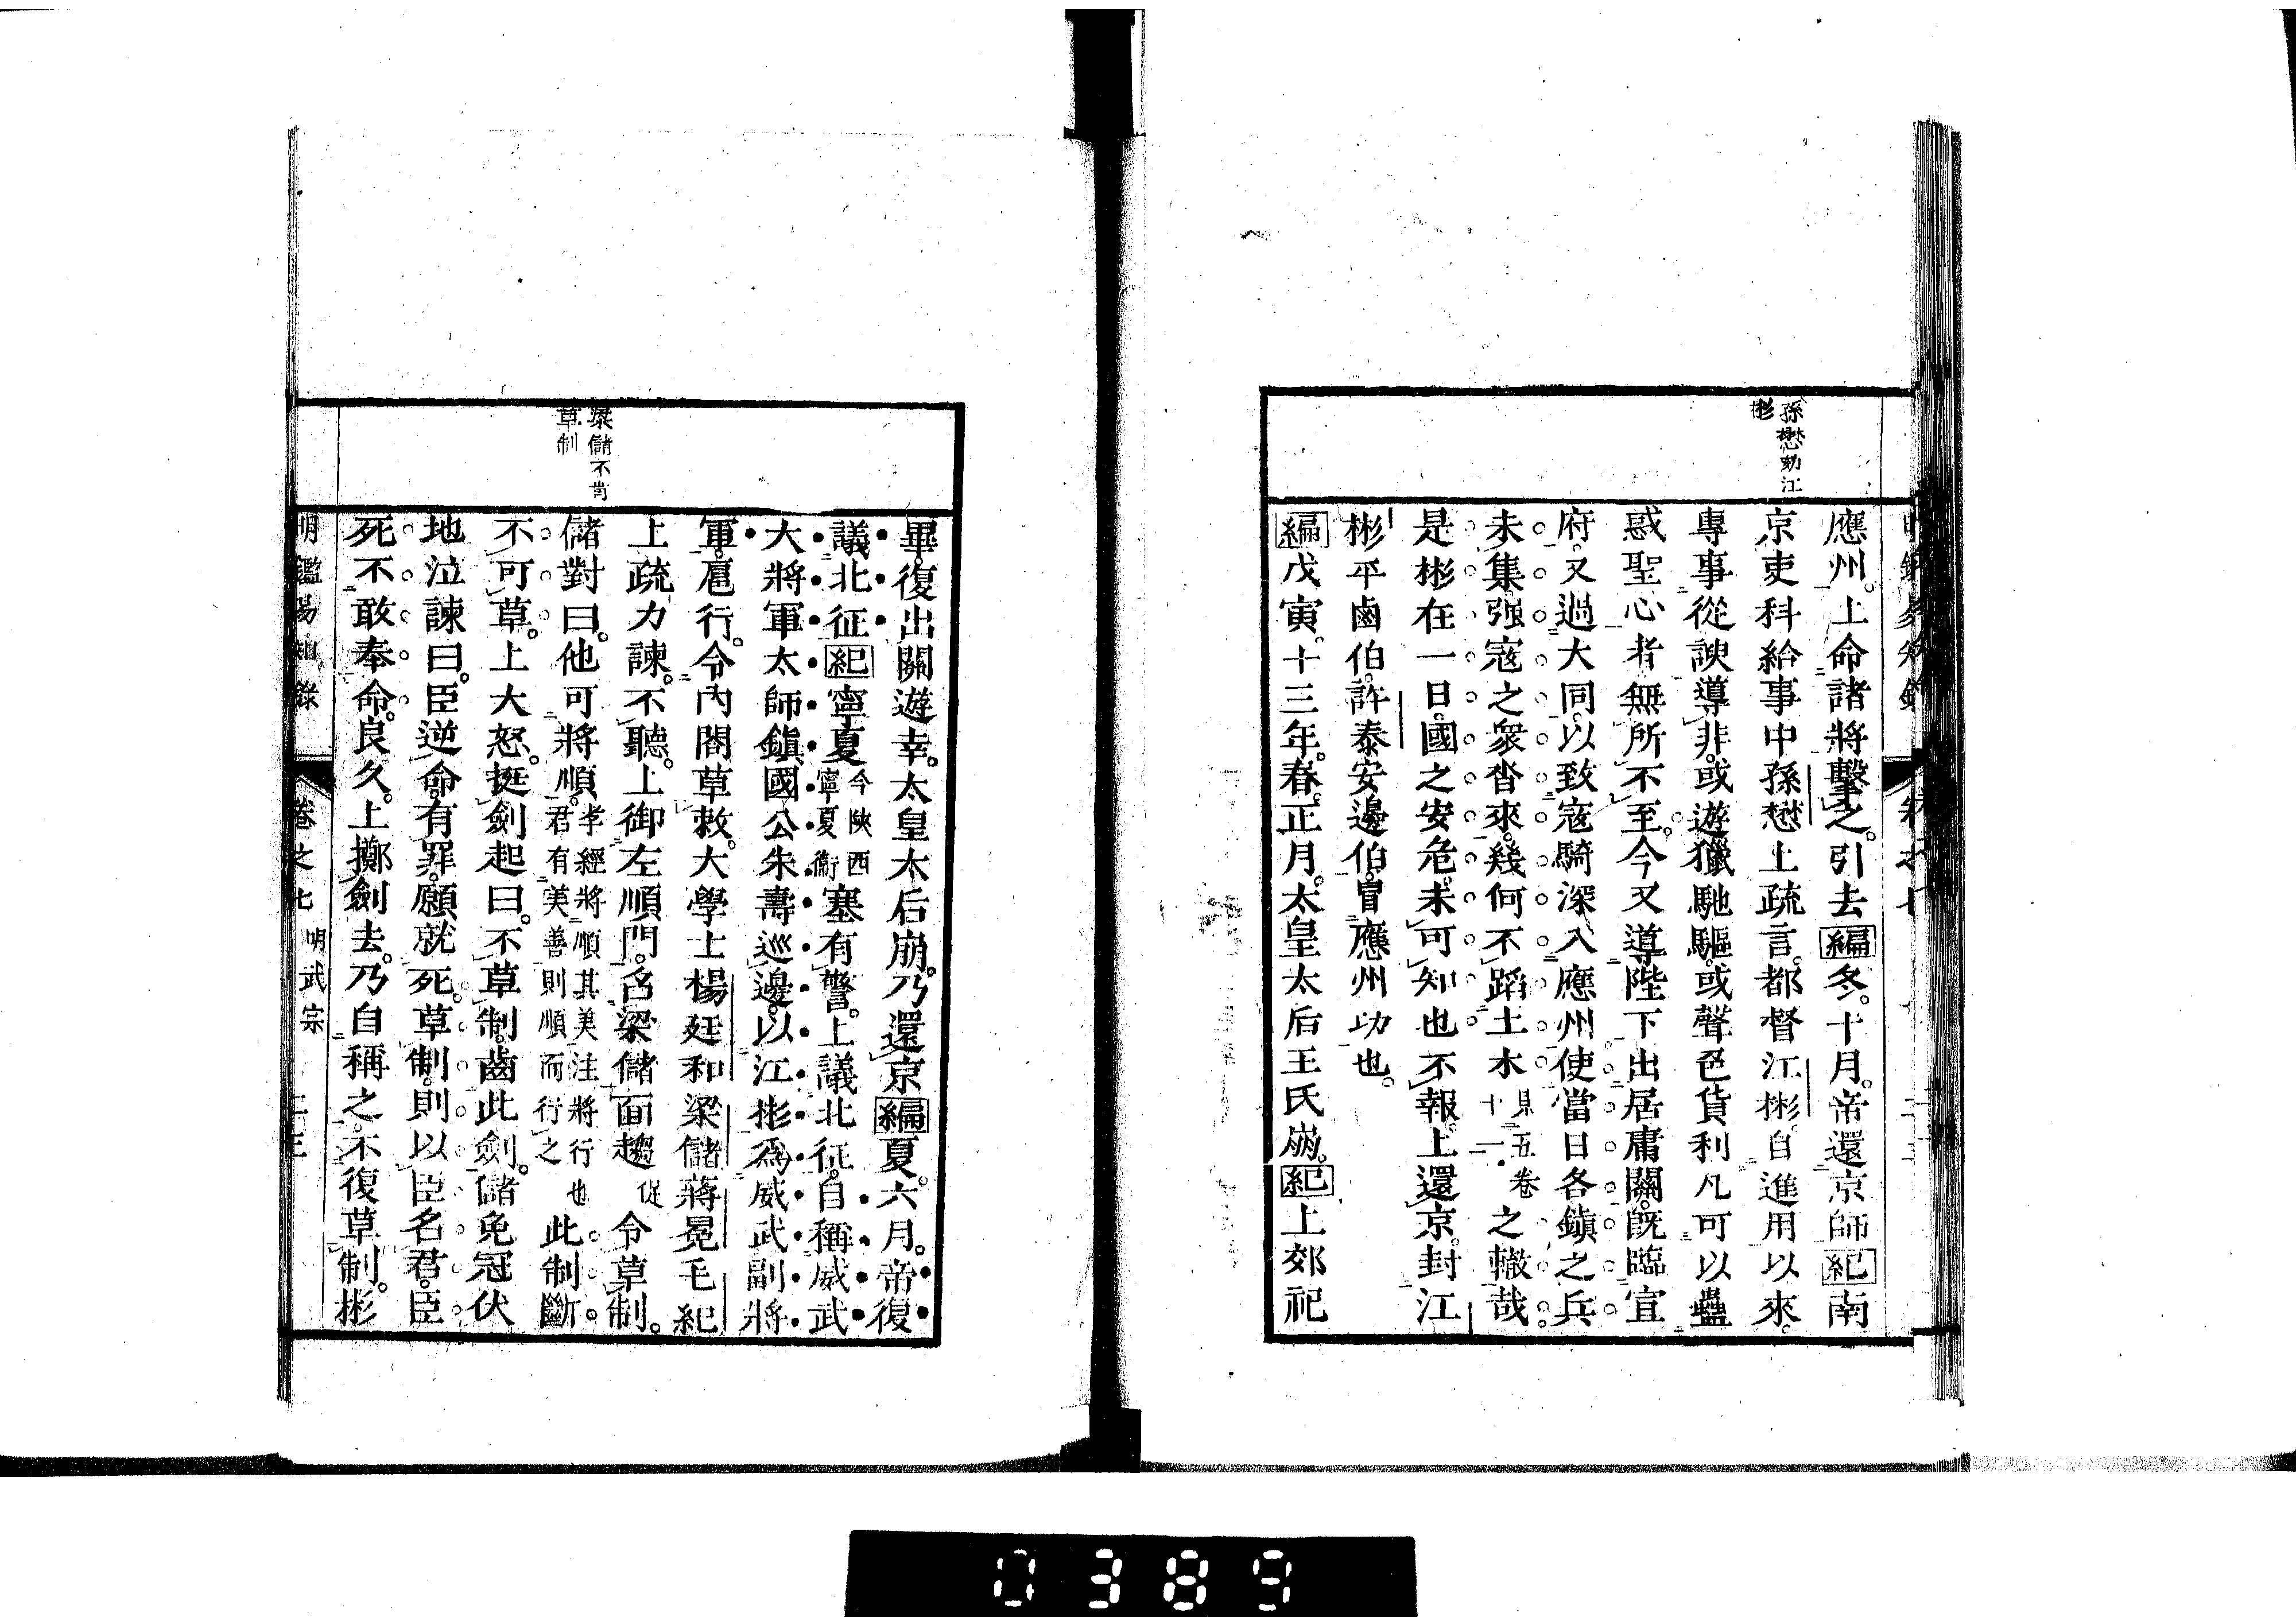 孫懋劾江
彬
應州。上命諸將擊之。引去編冬。十月。帝還京師紀南
京吏科給事中孫懋上疏言。都督江彬。自進用以來。
專事從諛導非。或遊獵馳驅。或聲色貨利凡可以蠱
惑聖心者無所不至。今又導陛下出居庸關。既臨宣
府。又過大同。以致寇騎深入應州使當日各鎮之兵
未集。强寇之衆沓來。幾何不蹈土木
見五卷
十一
之轍哉
是彬在一日。國之安危。未可知也不報。上還京。封江
彬平鹵伯。許泰安邊伯。冒應州功也。
編戊寅。十三年。春。正月。太皇太后王氏崩。紀上郊祀
梁儲不肯
草制
畢。復出關遊幸。太皇太后崩。乃還京編夏。六月。帝復
議北征紀寧夏
今陝西
寧夏衞
塞有警。上議北征。自稱威武
大將軍太師鎮國公朱壽巡邊。以江彬爲威武副將
軍。扈行。令內閣草敕。大學士楊廷和梁儲蔣冕毛紀
上疏力諫。不聽。上御左順門。召梁儲面趨
促
令草制。
儲對曰。他可將順。
孝經將順其美注將行也
君有美善則順而行之
此制斷
不可草。上大怒。挺劍起曰。不草制。齒此劍。儲免冠伏
地泣諫曰。臣逆命。有罪。願就死。草制。則以臣名君。臣
死不敢奉命。良久。上擲劍去。乃自稱之。不復草制。彬
明鑑易知錄
卷之七
明武宗